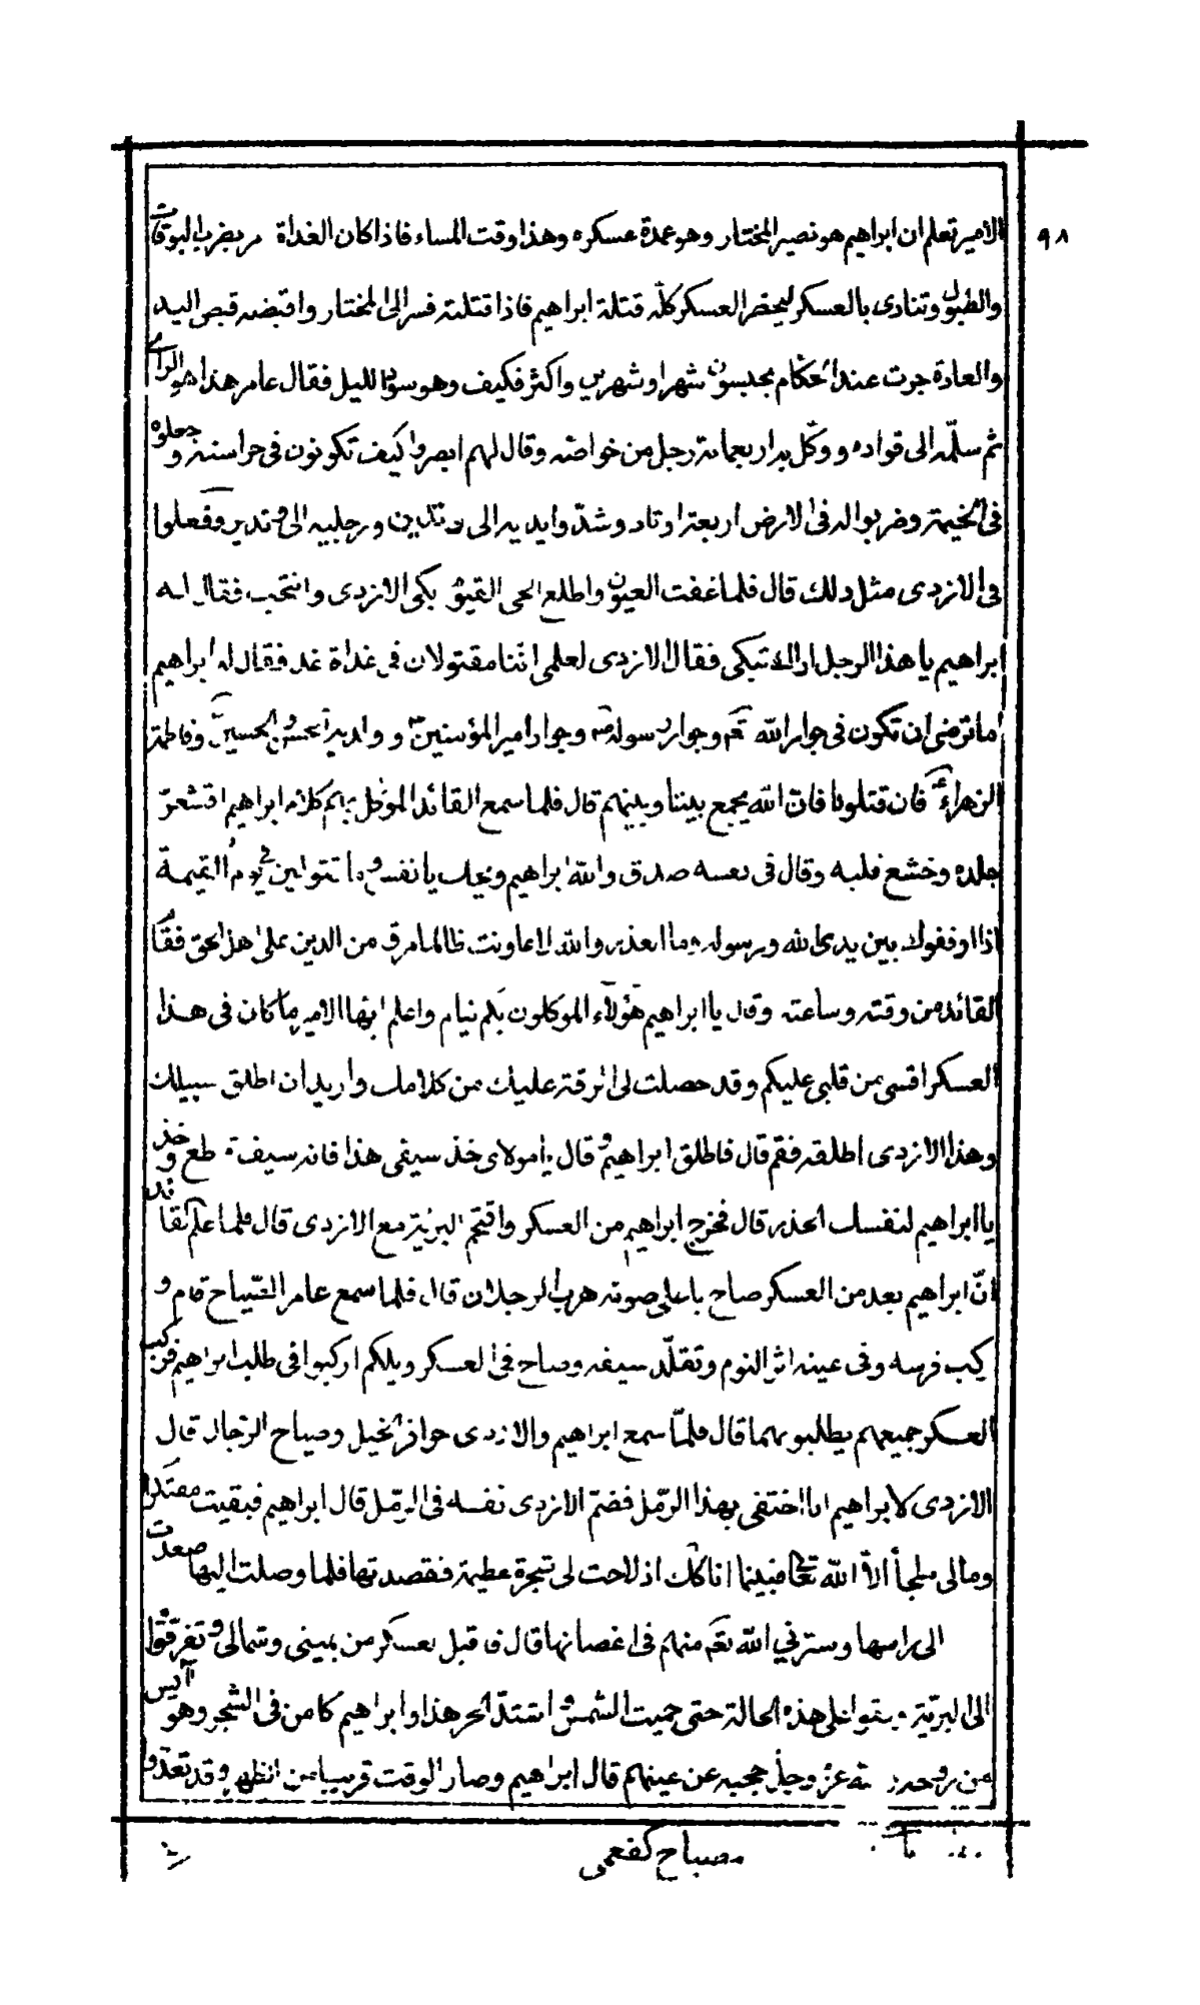 ٩٨
الامير تعلم ان ابراهيم هو نصير المختار وهو عمدة عسكره وهذا وقت المساء فاذا كان الغداة مر بضرب البوقات
والطبول وتنادى بالعسكر ليحضر العسكر كلّه قتلة ابراهيم فاذا قتلته فسر الى المختار واقبضه قبض اليد
والعادة جرت عند الحكّام يحبسون شهرا وشهرين واكثر فكيف وهو سواد الليل فقال عامر هذا هو الراى
ثم سلّمه الى قواده ووكّل به اربعمائة رجل من خواصّه وقال لهم ابصروا كيف تكونون فى حراسته وجعلوه
فى الخيمة وضربوا له فى الارض اربعة اوتاد وشدّوا يديه الى وتدين ورجليه الى وتدين وفعلوا
فى الازدى مثل ذلك قال فلما غفت العيون واطلع الحى القيوم بكى الازدى وانتحب فقال له
ابراهيم يا هذا الرجل اراك تبكى فقال الازدى لعلمى انّنا مقتولان فى غداة غد فقال له ابراهيم
اما ترضى ان تكون فى جوار الله تعم وجوار رسوله ص وجوار امير المؤمنين ع وولديه الحسن والحسين وفاطمة
الزهراء ع فان قتلونا فان الله يجمع بيننا وبينهم قال فلما سمع القائد الموكل بهم كلام ابراهيم اقشعرّ
جلده وخشع قلبه وقال فى نفسه صدق والله ابراهيم ويحك يا نفس ما تقولين فى يوم القيمة
اذا اوقفوك بين يدى الله ورسوله وما العذر والله لا عاونت ظالما مرق من الدين على هذا الحق فقام
القائد من وقته وساعته وقال يا ابراهيم هؤلاء الموكلون بكم نيام واعلم ايّها الامير ما كان فى هذا
العسكر اقسى من قلبى عليكم وقد حصلت لى الرقة عليك من كلامك واريد ان اطلق سبيلك
وهذا الازدى اطلقه فقم قال فاطلق ابراهيم وقال يا مولاى خذ سيفى هذا فانه سيف قطع وخذ
يا ابراهيم لنفسك الحذر قال فخرج ابراهيم من العسكر واقتحم البريّة مع الازدى قال فلما علم القائد
انّ ابراهيم بعد من العسكر صاح باعلى صوته هرب الرجلان قال فلما سمع عامر الصّياح قام و
ركب فرسه وفى عينه اثر النوم وتقلّد سيفه وصاح فى العسكر ويلكم اركبوا فى طلب ابراهيم فركب
العسكر جميعهم يطلبونهما قال فلمّا سمع ابراهيم والازدى حوافر الخيل وصياح الرّجال قال
الازدى لابراهيم انا اختفى بهذا الرمّل فضمّ الازدى نفسه فى الرمّل قال ابراهيم فبقيت مفتكرا
ومالى ملجأ الاّ الله تعالى فبينما انا كك اذ لاحت لى شجرة عظيمة فقصدتها فلما وصلت اليها صعدت
الى راسها وسترنى الله تعم منهم فى اغصانها قال فاقبل عسكر من يمينى وشمالى وتفرّقوا
الى البريّة وبقوا على هذه الحالة حتى حميت الشمس واشتدّ الحر هذا وابراهيم كامن فى الشجر وهو آيس
من روحه الله عزّ وجلّ حجبه عن عينهم قال ابراهيم وصار الوقت قريبا من الظهر وقد تعدّوا
مصباح كفعمى